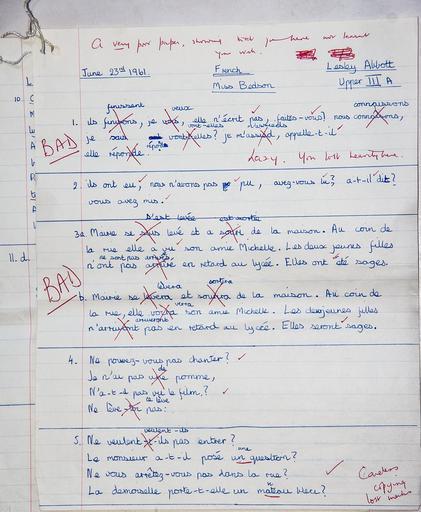 A very poor paper, showing that you have not learnt
your work.
June 23rd 1961. French Lesley Abbott
Miss Bedson Upper III A
finissent veux connaissons
1. ils finirons, je vois, elle n'écrit pas, faites-vous? nous connaisons,
vont-elles m'assieds
je sais vontselles? je m'assied, appelle-t-il
BAD
répond
elle réponde. Lazy. You lost
2. ils ont eu, nous n'avons pas pu, avez-vous lu? a-t-il dit?
vous avez mis.
s'est levée est sortie
3a Marie se sous levé et a sorti de la maison. Au coin de
la rue elle a vu son amie Michelle. Les deux jeunes filles
ne sont pas arrivées
n'ont pas arrivé en retard au lycée. Elles ont été sages.
BAD
lèvera sortira
b. Marie se levera et sourira de la maison. Au coin de
verra
la rue, elle voira son amie Michelle. Les deux jeunes filles
arriveront
n'arriveront pas en retard au lycée. Elles seront sages.
11. d.
4. Ne pouvez-vous pas chanter?
de
Je n'ai pas une pomme,
N'a-t-il pas vu le film?
te lève
Ne lève-toi pas.
veulent-ils
5. Ne veulent-t-ils pas entrer?
une
Le monsieur a-t-il posé un question?
Ne vous arrêtez-vous pas dans la rue?
n
La demoiselle porte-t-elle un mateau bleu?
Careless
copying
lost marks